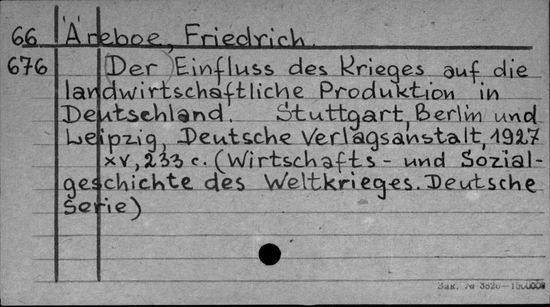 66 Äreboe, Friedrich.
676 (Der) Einfluss des Krieges auf die
landwirtschaftliche Produktion in
Deutschland. Stuttgart, Berlin und
Leipzig, Deutsche Verlagsanstalt, 1927
XV, 233 c. (Wirtschafts- und Sozial-
geschichte des Weltkrieges. Deutsche
Serie)
Зак. № 3820-1500000